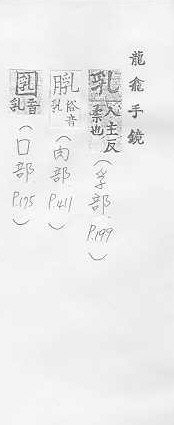 龍龕手鏡
乳 入主反柔也（孚部 P.199）
俗音乳（肉部 P.411）
音乳（口部 P.175）